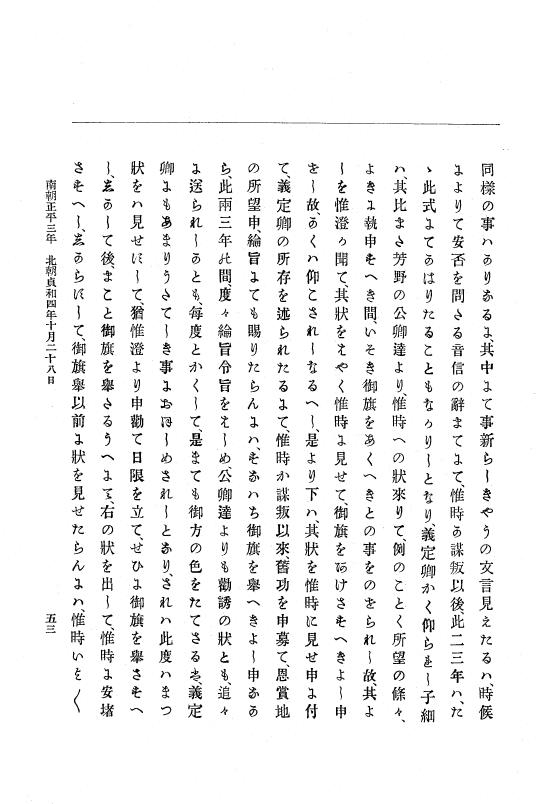 同様の事ハありなるよ、其中よて事新らしきやうの文言見えたるハ、時候
よよりて安否を問さる音信の辭までよて、惟時の謀叛以後、此二三年ハ、た
ゝ此式よてあはりたることもなかりしとなり、義定卿かく仰らをし子細
ハ、其比まさ芳野の公卿達より、惟時への狀來りて例のことく所望の條々、
よきよ執申そへき間、いそき御旗をあくへきとの事をのせられし故、其よ
しを惟澄の聞て、其狀をえやく惟時よ見せて、御旗をあけさそへきよし申
をし故、あくハ仰こされしなるへし、是より下ハ、其狀を惟時に見せ申よ付
て、義定卿の所存を述られたるよて、惟時か謀叛以來、舊功を申募て、恩賞地
の所望申、綸旨よても賜りたらんよハ、そなハち御旗を舉へきよし申ある
ら、此兩三年の間、度々綸旨令旨をえしめ公卿達よりも勸誘の狀とも、追々
よ送られしあとも、每度とかくして、是まても御方の色をたてさるを、義定
卿よもあまりうさてしき事よおほしめされしとあり、されハ此度ハまつ
狀をハ見せはして、猶惟澄より申勸て日限を立て、せひよ御旗を舉さそへ
し、志かして後、まこと御旗を舉さるうへよて、右の狀を出して、惟時よ安堵
さそへし、志あらはして、御旗舉以前よ狀を見せたらんよハ、惟時いとゝく
南朝正平三年　北朝貞和四年十月二十八日
五三